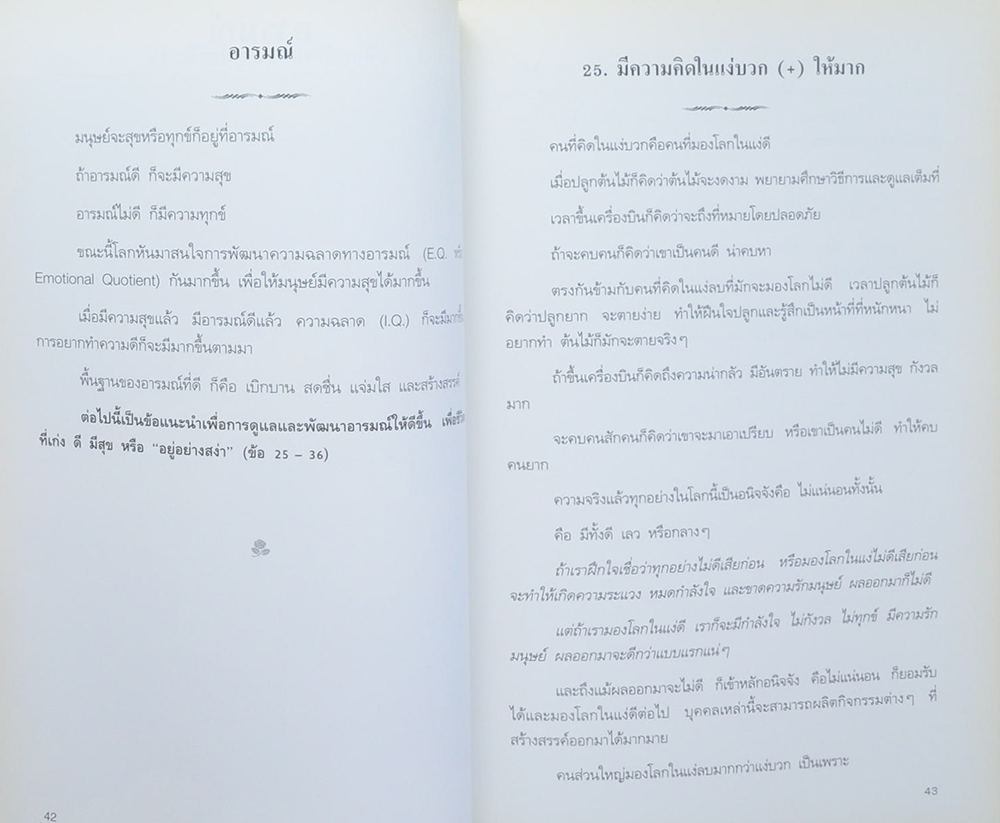 อารมณ์
มนุษย์จะสุขหรือทุกข์ก็อยู่ที่อารมณ์
ถ้าอารมณ์ดี ก็จะมีความสุข
อารมณ์ไม่ดี ก็มีความทุกข์
ขณะนี้โลกหันมาสนใจการพัฒนาความฉลาดทางอารมณ์ (E.Q.
Emotional Quotient) กันมากขึ้น เพื่อให้มนุษย์มีความสุขได้มากขึ้น
เมื่อมีความสุขแล้ว มีอารมณ์ดีแล้ว ความฉลาด (I.Q.) ก็จะมีมากขึ้น
การอยากทำความดีก็จะมีมากขึ้นตามมา
พื้นฐานของอารมณ์ที่ดี ก็คือ เบิกบาน สดชื่น แจ่มใส และสร้างสรรค์
ต่อไปนี้เป็นข้อแนะนำเพื่อการดูแลและพัฒนาอารมณ์ให้ดีขึ้น
ที่เก่ง ดี มีสุข หรือ "อยู่อย่างสง่า" (ข้อ 25 – 36)
42
25. มีความคิดในแง่บวก (+) ให้มาก
คนที่คิดในแง่บวกคือคนที่มองโลกในแง่ดี
เมื่อปลูกต้นไม้ก็คิดว่าต้นไม้จะงดงาม พยายามศึกษาวิธีการและดูแลเต็มที่
เวลาขึ้นเครื่องบินก็คิดว่าจะถึงที่หมายโดยปลอดภัย
ถ้าจะคบคนก็คิดว่าเขาเป็นคนดี น่าคบหา
ตรงกันข้ามกับคนที่คิดในแง่ลบที่มักจะมองโลกไม่ดี เวลาปลูกต้นไม้ก็
คิดว่าปลูกยาก จะตายง่าย ทำให้ฝืนใจปลูกและรู้สึกเป็นหน้าที่ที่หนักหนา ไม่
อยากทำ ต้นไม้ก็มักจะตายจริงๆ
ถ้าขึ้นเครื่องบินก็คิดถึงความน่ากลัว มีอันตราย ทำให้ไม่มีความสุข กังวล
มาก
จะคบคนสักคนก็คิดว่าเขาจะมาเอาเปรียบ หรือเขาเป็นคนไม่ดี ทำให้คบ
คนยาก
ความจริงแล้วทุกอย่างในโลกนี้เป็นอนิจจังคือ ไม่แน่นอนทั้งนั้น
คือ มีทั้งดี เลว หรือกลางๆ
ถ้าเราฝึกใจเชื่อว่าทุกอย่างไม่ดีเสียก่อน หรือมองโลกในแง่ไม่ดีเสียก่อน
จะทำให้เกิดความระแวง หมดกำลังใจ และขาดความรักมนุษย์ ผลออกมาก็ไม่ดี
แต่ถ้าเรามองโลกในแง่ดี เราก็จะมีกำลังใจ ไม่กังวล ไม่ทุกข์ มีความรัก
มนุษย์ ผลออกมาจะดีกว่าแบบแรกแน่ๆ
และถึงแม้ผลออกมาจะไม่ดี ก็เข้าหลักอนิจจัง คือไม่แน่นอน ก็ยอมรับ
ได้และมองโลกในแง่ดีต่อไป บุคคลเหล่านี้จะสามารถผลิตกิจกรรมต่างๆ ที่
สร้างสรรค์ออกมาได้มากมาย
คนส่วนใหญ่มองโลกในแง่ลบมากกว่าแง่บวก เป็นเพราะ
43